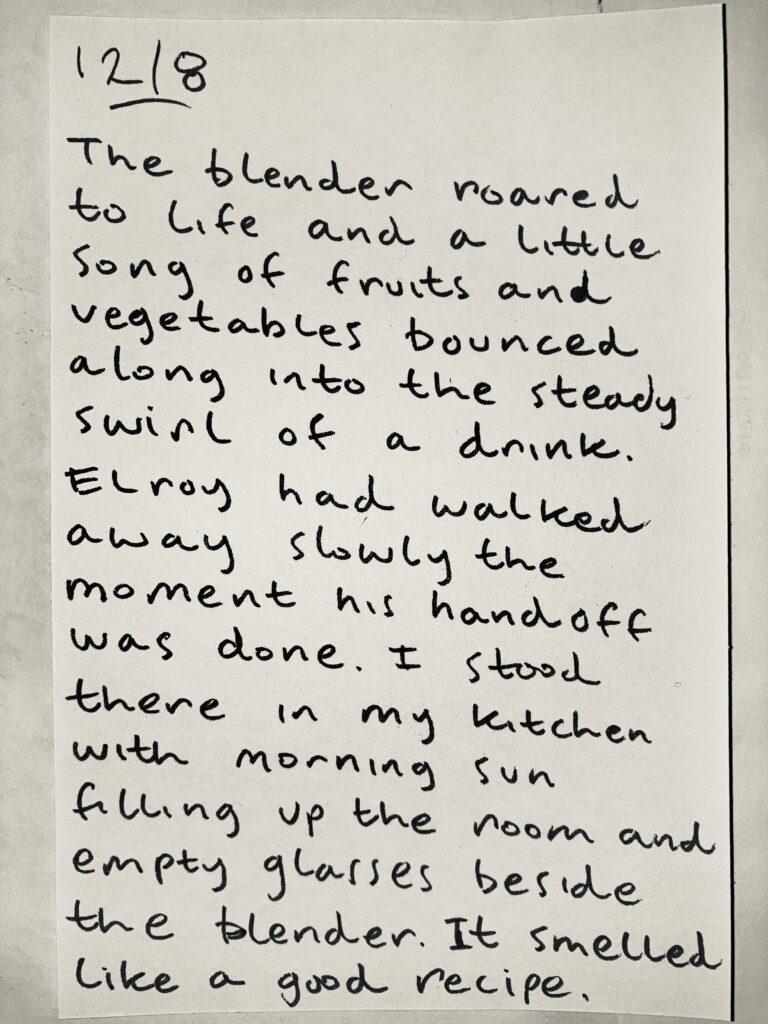 12/8
The blender roared
to life and a little
song of fruits and
vegetables bounced
along into the steady
swirl of a drink.
Elroy had walked
away slowly the
moment his handoff
was done. I stood
there in my kitchen
with morning sun
filling up the room and
empty glasses beside
the blender. It smelled
like a good recipe.